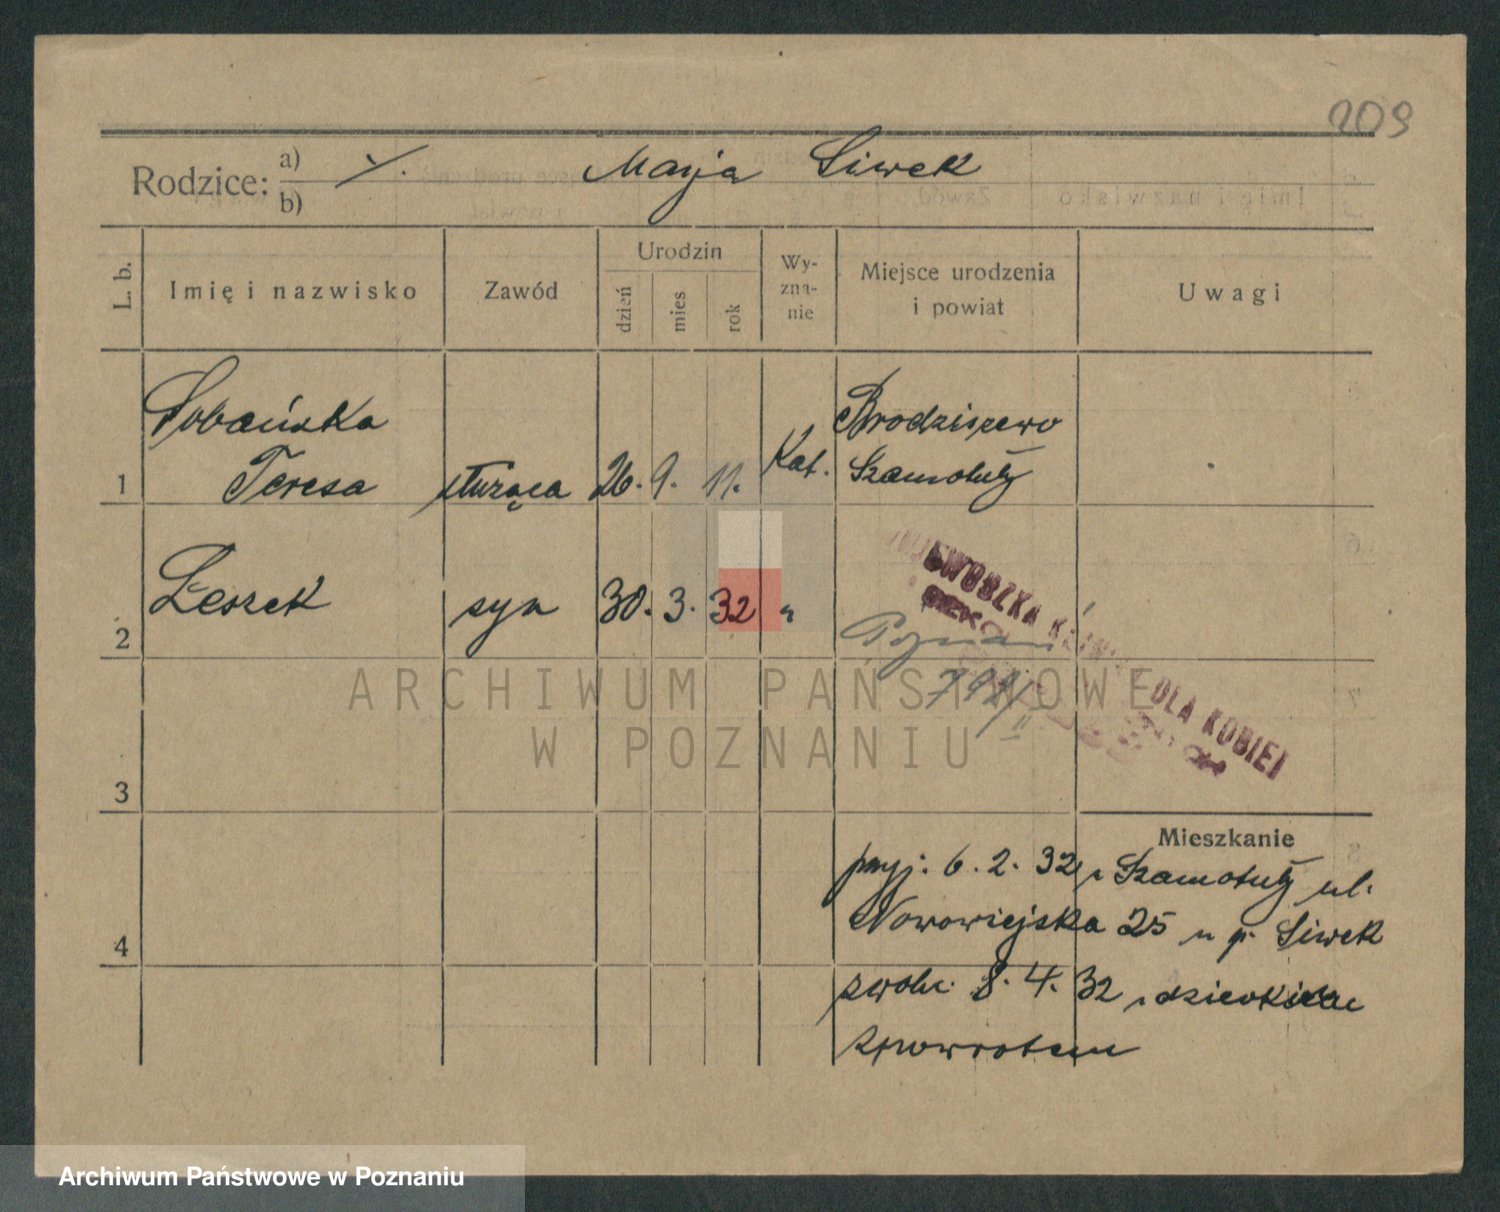 209
Rodzice: a) ./.
b)
Marja Siwek
L. b.
Imię i nazwisko
Zawód
Urodzin
dzień
mies
rok
Wy-
zna-
nie
Miejsce urodzenia
i powiat
Uwagi
Sobańska
Teresa
1
służąca
26. 9. 11.
Kat.
Brodziszewo
Szamotuły
2
Leszek
syn
30. 3. 32
"
Poznań
DLA KOBIET
3
4
Mieszkanie
przyj: 6. 2. 32 z Szamotuły ul.
Nowowiejska 25 u p. Siwek
zwoln. 8. 4. 32 z dzieckiem
zpowrotem
ARCHIWUM PAŃSTWOWE
W POZNANIU
Archiwum Państwowe w Poznaniu